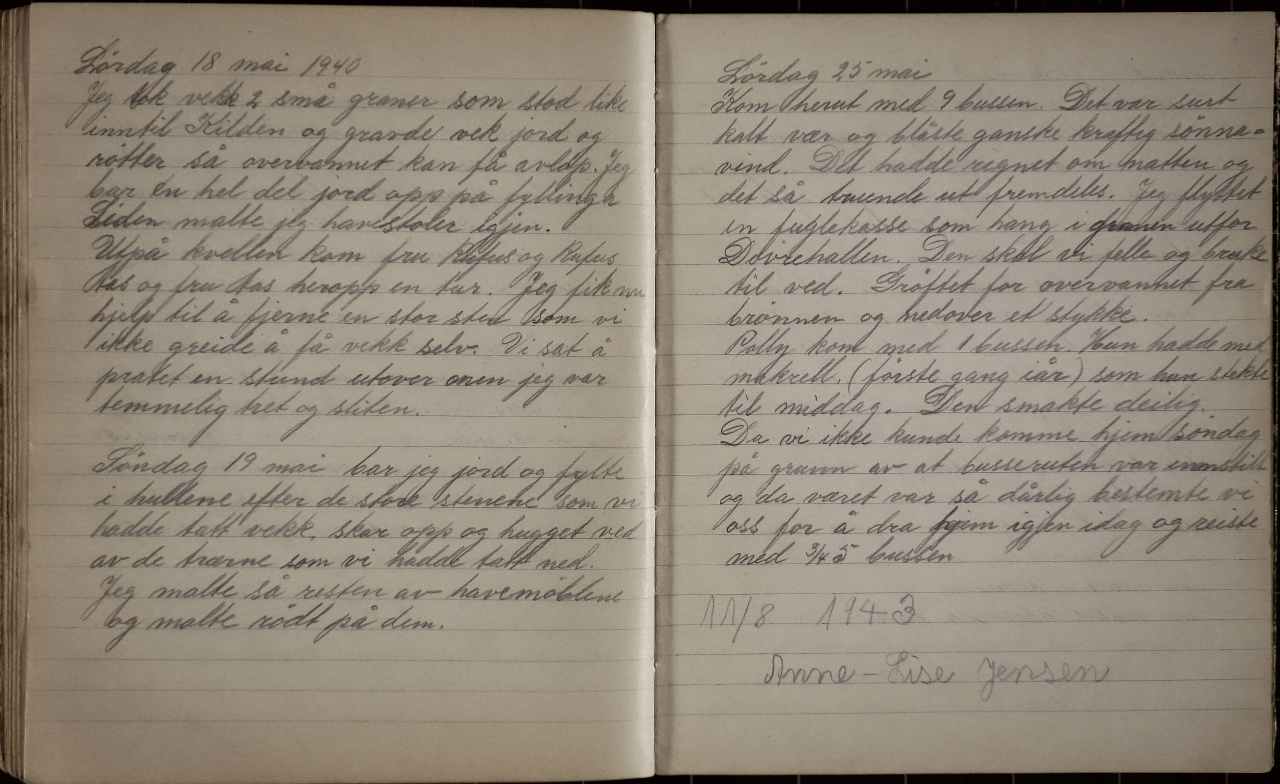 Lördag 18 mai 1940
Jeg tok vekk 2 små graner som stod like
inntil Kilden og gravde vek jord og
rötter så overvannet kan få avlöp. Jeg
bar en hel del jord opp på fyllinga
Siden malte jeg havestoler igjen.
Utpå kvellen kom fru Rufus og Rufus
Aas og fru Aas heropp en tur. Jeg fik nu
hjelp til å fjerne en stor sten som vi
ikke greide å få vekk selv. Vi sat å
pratet en stund utover men jeg var
temmelig tret og sliten.
Söndag 19 mai bar jeg jord og fylte
i hullene efter de store stenene som vi
hadde tatt vekk, skar opp og hugget ved
av de trærne som vi hadde tatt ned.
Jeg malte så resten av havemöblene
og malte rödt på dem.
Lördag 25 mai
Kom herut med 9 bussen. Det var surt
kalt vær og blåste ganske kraftig sönna-
vind. Det hadde regnet om natten og
det så truende ut fremdeles. Jeg flyttet
en fuglekasse som hang i granen utfor
Dovrehallen. Den skal vi felle og bruke
til ved. Gröftet for overvannet fra
brönnen og nedover et stykke.
Polly kom med 1 bussen. Hun hadde med
makrell, (förste gang iår) som hun stekte
til middag. Den smakte deilig.
Da vi ikke kunde komme hjem söndag
på grunn av at bussruten var innstilt
og da været var så dårlig bestemte vi
oss for å dra hjem igjen idag og reiste
med 3/4 5 bussen
11/8 1943
Anne-Lise Jensen